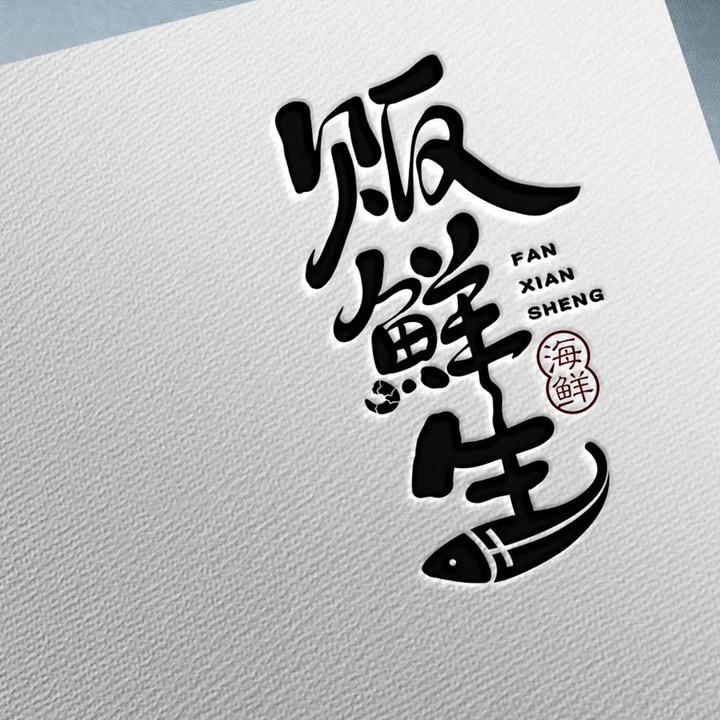 贩鮮生
FAN
XIAN
SHENG
海
鲜